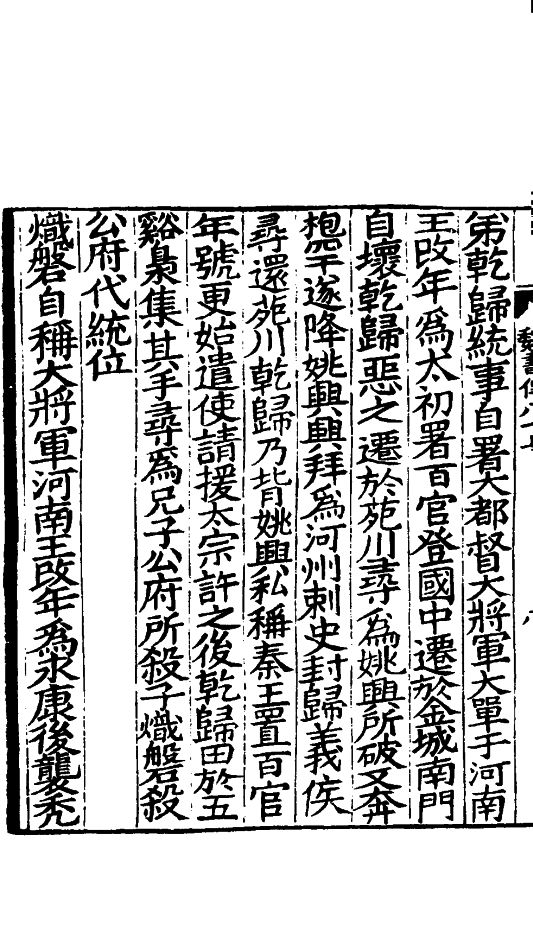 弟乾歸統事自署大都督大將軍大單于河南
王改年爲太初署百官登國中遷於金城南門
自壞乾歸惡之遷於苑川尋爲姚興所破又奔
枹罕遂降姚興興拜爲河州刺史封歸義侯
尋還苑川乾歸乃背姚興私稱秦王置百官
年號更始遣使請援太宗許之後乾歸田於五
谿梟集其手尋爲兄子公府所殺子熾磐殺
公府代統位
熾磐自稱大將軍河南王改年爲永康後襲禿